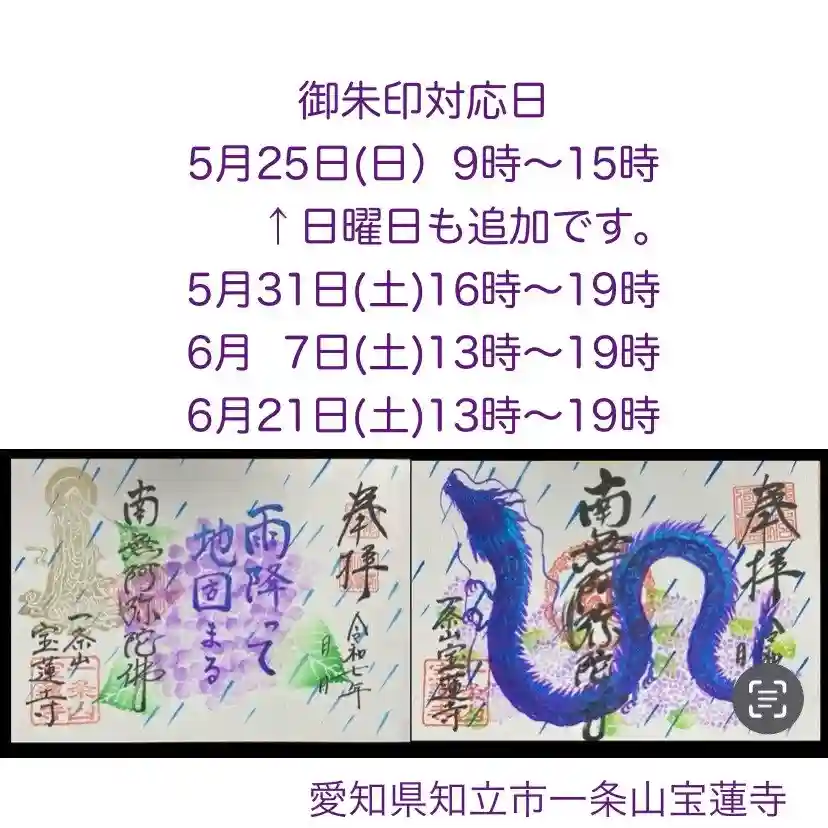 御朱印対応日
5月25日(日）9時〜15時
↑日曜日も追加です。
5月31日(土)16時〜19時
6月 7日(土)13時〜19時
6月21日(土)13時〜19時
奉拝
令和七年
月 日
雨降って
地固まる
南無阿弥陀佛
一条山
宝蓮寺
奉拝
令和
月
南無阿弥陀
一条山宝蓮寺
愛知県知立市一条山宝蓮寺